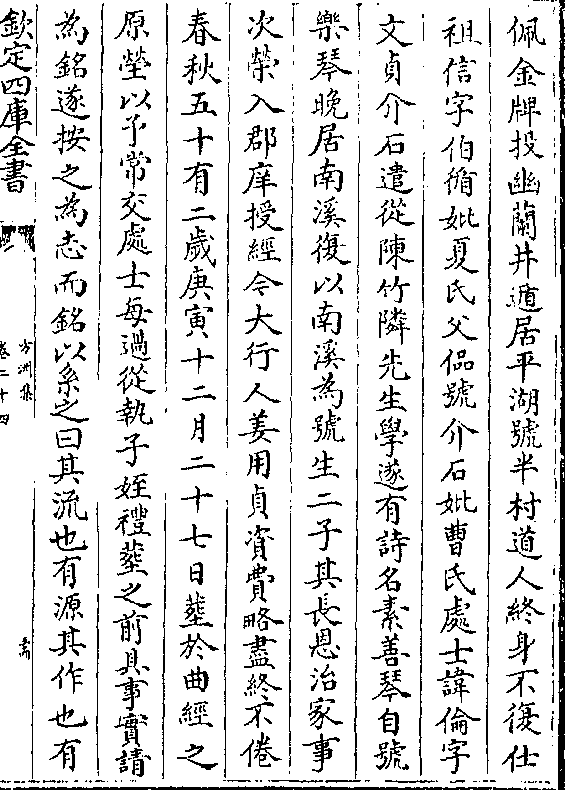 佩金牌投幽蘭井遁居平湖號半村道人終身不復仕
祖信字伯脩妣夏氏父偘號介石妣曹氏處士諱倫字
文貞介石遣從陳竹隣先生學遂有詩名素善琴自號
樂琴晚居南溪復以南溪為號生二子其長恩治家事
次榮入郡庠授經令大行人姜用貞資費略盡終不倦
春秋五十有二歲庚寅十二月二十七日塟於曲經之
原塋以予常交處士每過從執子姪禮塟之前具事實請
為銘遂按之為志而銘以系之曰其流也有源其作也有
欽定四庫全書
方洲集
卷二十四